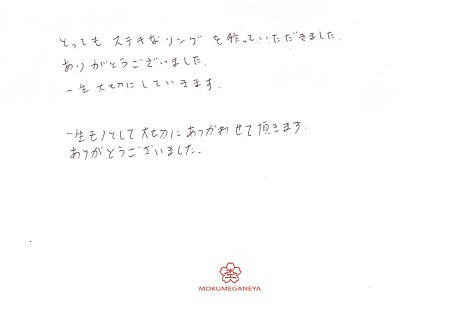 とっても ステキなリング を作っていただきました。
ありがとうございました。
一生 大切に していきます。
一生モノとして 大切に あつかわせて頂きます。
ありがとうございました。
MOKUMEGANEYA